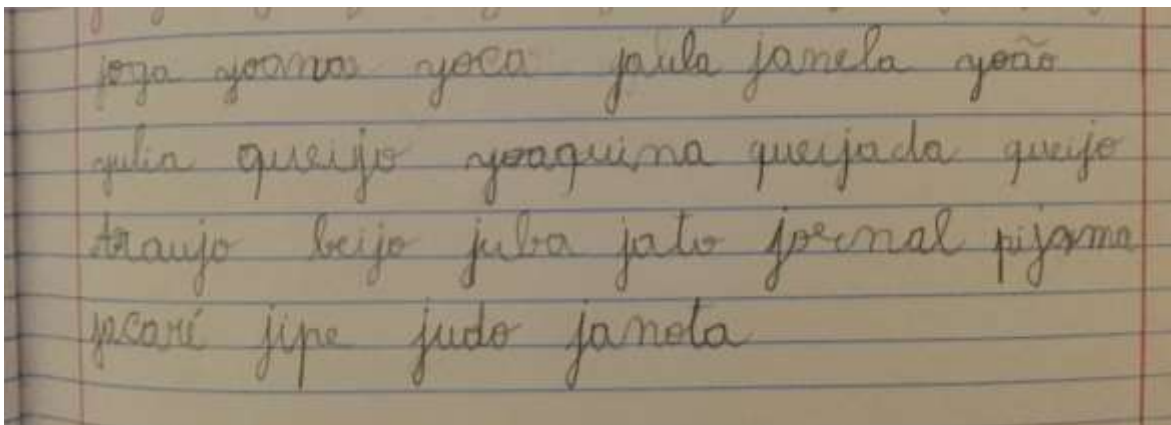 joga joana joca jaula janela joão
julia queijo joaquina queijada queijo
araujo beijo juba jato jornal pijama
jacaré jipe judo janota